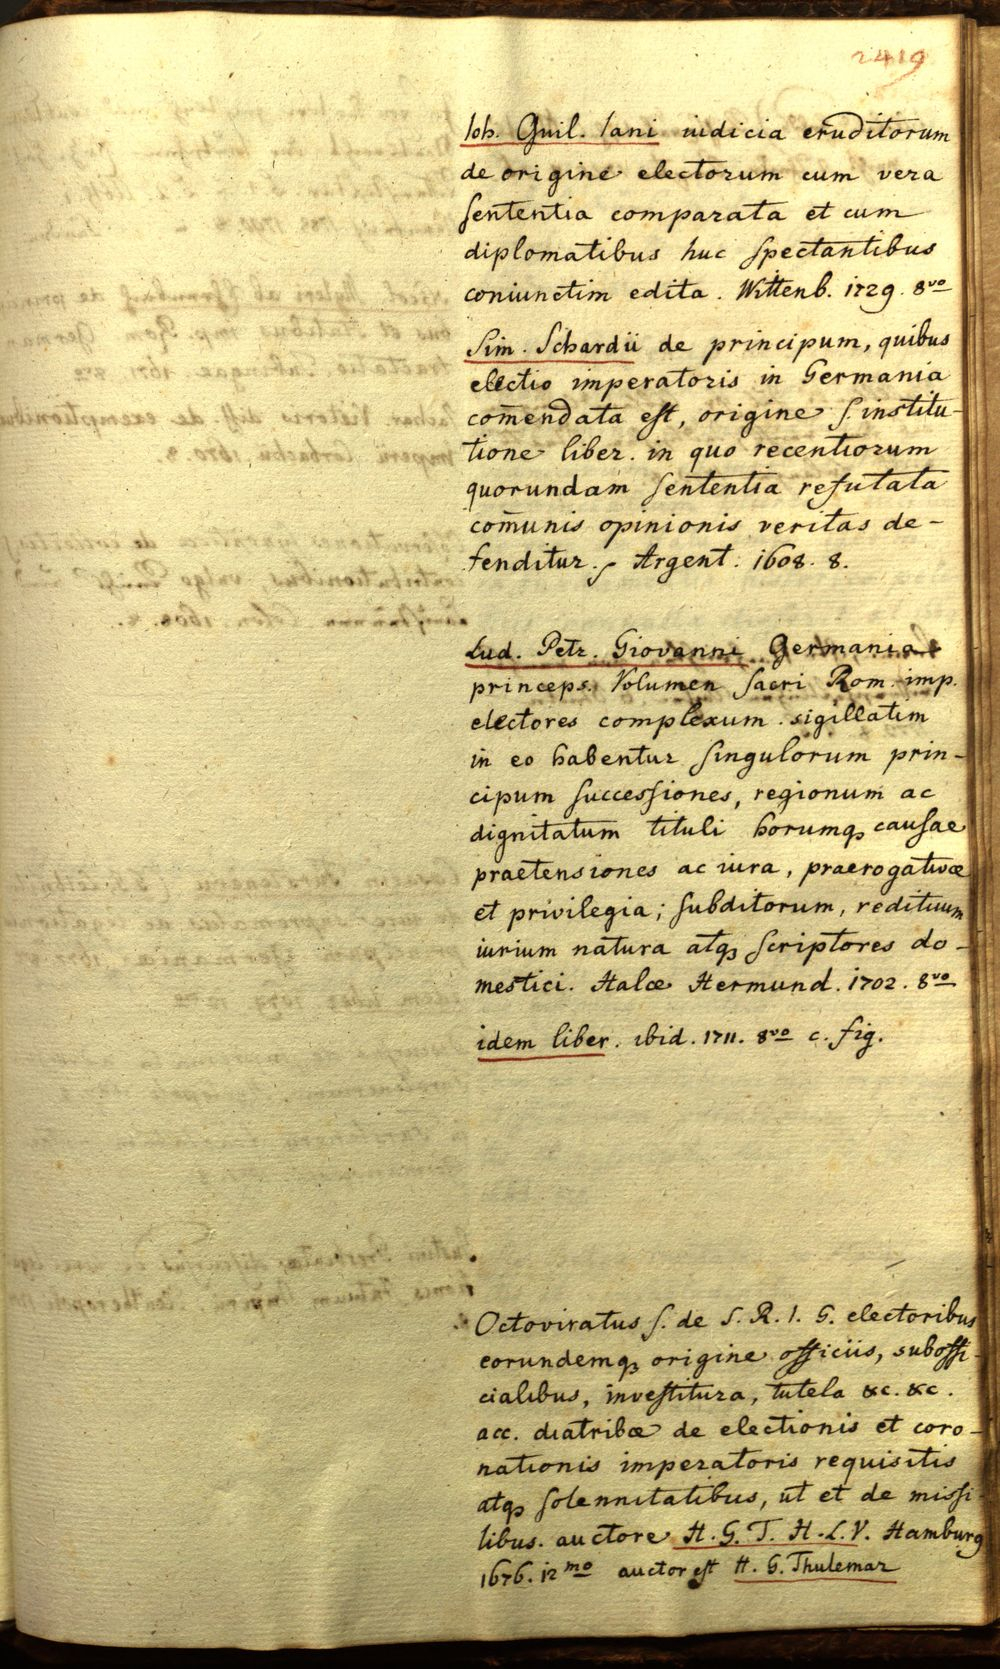 2419
Ioh. Guil. Iani iudicia eruditorum
de origine electorum cum vera
sententia comparata et cum
diplomatibus huc spectantibus
coniunctim edita. Wittenb. 1729. 8vo
Sim. Schardii de principum, quibus
electio imperatoris in Germania
com̄endata est, origine s. institu-
tione liber. in quo recentiorum
quorundam sententia refutata
com̄unis opinionis veritas de-
fenditur. Argent. 1608. 8.
Lud. Petr. Giovanni Germania
princeps. Volumen sacri Rom. imp.
electores complexum. sigillatim
in eo habentur singulorum prin-
cipum successiones, regionum ac
dignitatum tituli horumq; causae
praetensiones ac iura, praerogativae
et privilegia; subditorum, redituum
iurium natura atq; scriptores do-
mestici. Halae Hermund. 1702. 8vo
idem liber. ibid. 1711. 8vo c. fig.
Octoviratus s. de S. R. I. G. electoribus
eorundemq; origine officiis, suboffi-
cialibus, investitura, tutela &c. &c.
acc. diatribae de electionis et coro-
nationis imperatoris requisitis
atq; solennitatibus, ut et de missi-
libus. auctore H. G. T. H. L. V. Hamburg
1676. 12mo auctor est H. G. Thulemar